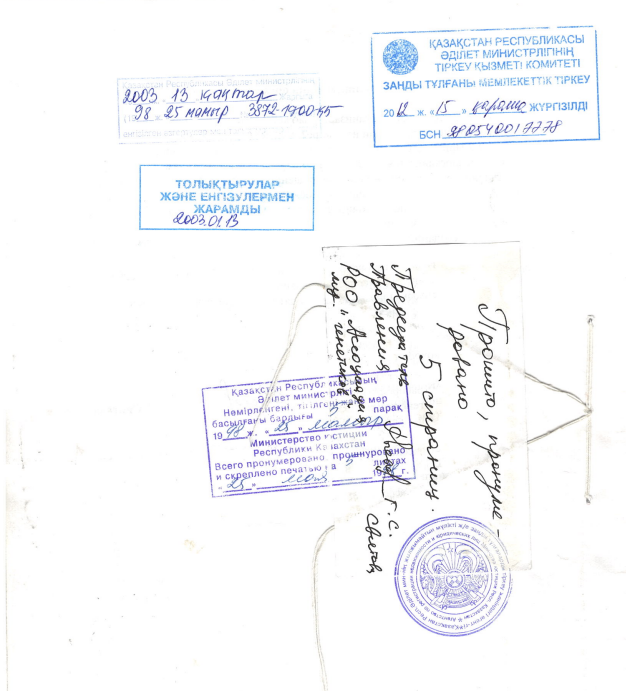 ҚАЗАҚСТАН РЕСПУБЛИКАСЫ
ӘДІЛЕТ МИНИСТРЛІГІНІҢ
ТІРКЕУ ҚЫЗМЕТІ КОМИТЕТІ
ЗАНДЫ ТҰЛҒАНЫ МЕМЛЕКЕТТІК ТІРКЕУ
2012 ж. «15» қараша ЖҮРГІЗІЛДІ
БСН 980540017778
2003 . 13 қаңтар
98 25 мамыр . 3872-1900
ТОЛЫҚТЫРУЛАР
ЖӘНЕ ЕНГІЗУЛЕРМЕН
ЖАРАМДЫ
2003.01.13
Прошито, пронуме-
ровано
5 страниц.
Председатель
Правления
РОО „Ассоциация
мед. генетиков"
Г.С. Святова
Қазақстан Республикасының
Әділет министрлігі
Нөмірленген, тігілген және мөр
басылғаны барлығы 5 парақ
1998 ж. «25» мамыр
Министерство юстиции
Республики Казахстан
Всего пронумеровано, прошнуровано
и скреплено печатью на 5 листах
«25» мая 1998 г.